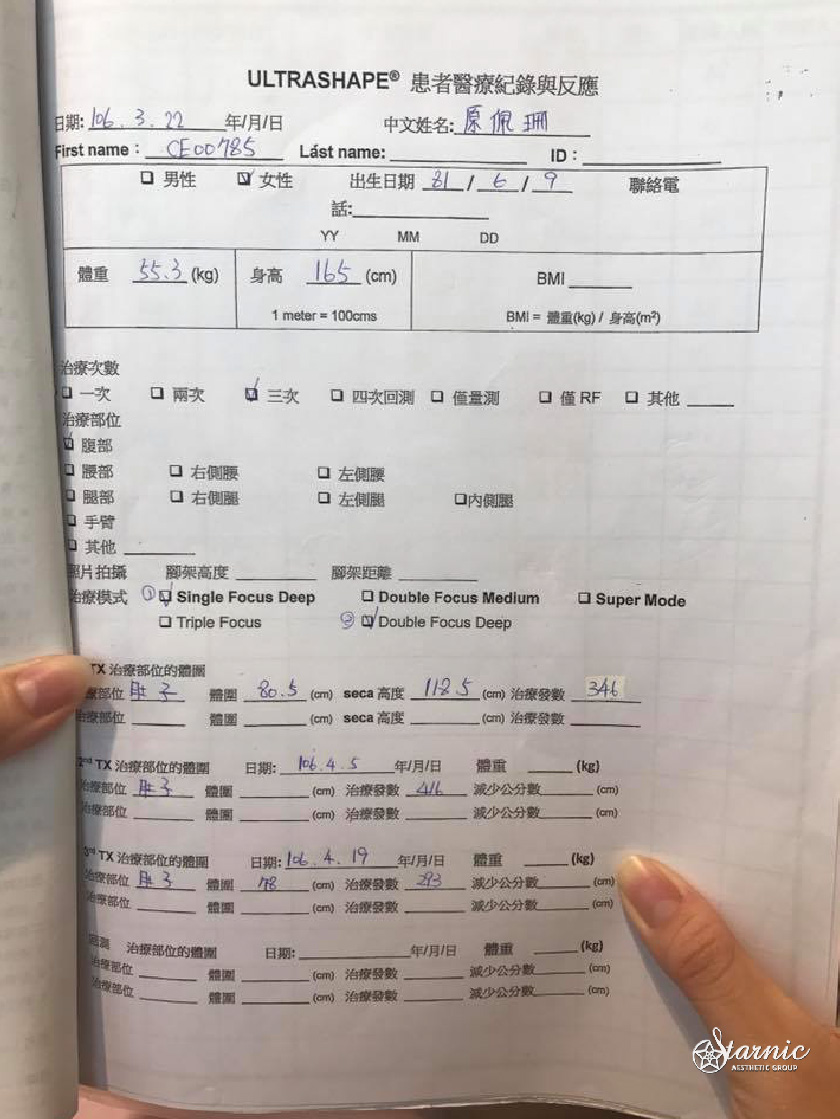 ULTRASHAPE® 患者醫療紀錄與反應
日期: 106.3.22 年/月/日 中文姓名: 原佩珊
First name: CE00785 Last name: ID:
□ 男性 ☑ 女性 出生日期 81 / 6 / 9 聯絡電
話:
YY MM DD
體重 55.3 (kg) 身高 165 (cm) BMI
1 meter = 100cms BMI = 體重(kg) / 身高(m²)
治療次數
□ 一次 □ 兩次 ☑ 三次 □ 四次回測 □ 僅量測 □ 僅 RF □ 其他
治療部位
☑ 腹部
□ 腰部 □ 右側腰 □ 左側腰
□ 腿部 □ 右側腿 □ 左側腿 □內側腿
□ 手臂
□ 其他
照片拍攝 腳架高度 腳架距離
治療模式 ① ☑ Single Focus Deep □ Double Focus Medium □ Super Mode
□ Triple Focus ② ☑ Double Focus Deep
TX 治療部位的體圍
療部位 肚子 體圍 80.5 (cm) seca 高度 118.5 (cm) 治療發數 346
治療部位 體圍 (cm) seca 高度 (cm) 治療發數
2nd TX 治療部位的體圍 日期: 106.4.5 年/月/日 體重 (kg)
治療部位 肚子 體圍 (cm) 治療發數 416 減少公分數 (cm)
治療部位 體圍 (cm) 治療發數 減少公分數 (cm)
3rd TX 治療部位的體圍 日期: 106.4.19 年/月/日 體重 (kg)
治療部位 肚子 體圍 78 (cm) 治療發數 293 減少公分數 (cm)
治療部位 體圍 (cm) 治療發數 減少公分數 (cm)
治療部位的體圍 日期: 年/月/日 體重 (kg)
治療部位 體圍 (cm) 治療發數 減少公分數 (cm)
治療部位 體圍 (cm) 治療發數 減少公分數 (cm)
Starnic
AESTHETIC GROUP